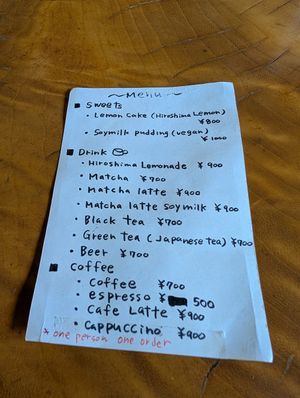 ~Menu~
■ Sweets
・Lemon Cake (Hiroshima Lemon)
¥800
・Soymilk pudding (vegan)
¥1000
■ Drink
・Hiroshima Lemonade ¥900
・Matcha ¥700
・Matcha latte ¥900
・Matcha latte soymilk ¥900
・Black tea ¥700
・Green Tea (Japanese tea) ¥700
・Beer ¥700
■ Coffee
・Coffee ¥700
・espresso ¥ 500
・Cafe Latte ¥900
・Cappuccino ¥900
* one person one order